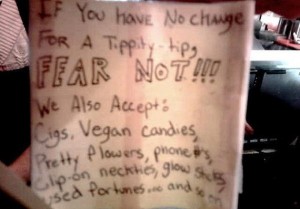 IF You Have No change
FOR A Tippity-tip,
FEAR NOT!!!
We Also Accept:
Cigs, Vegan candies,
Pretty flowers, phone #'s,
Clip-on neckties, glow sticks,
used fortunes... and so on